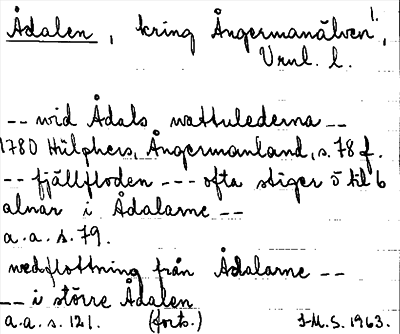 Ådalen, kring Ångermanälven 1.,
Vnul. l.
-- wid Ådals wattulederna --
1780 Hülphers, Ångermanland, s. 78 f.
-- fjällfloden --- ofta stiger 5 til 6
alnar i Ådalarne --
a.a.s. 79.
nedflottning från Ådalarne --
-- i större Ådalen
a.a.s. 121. (forts.) IMS. 1963.